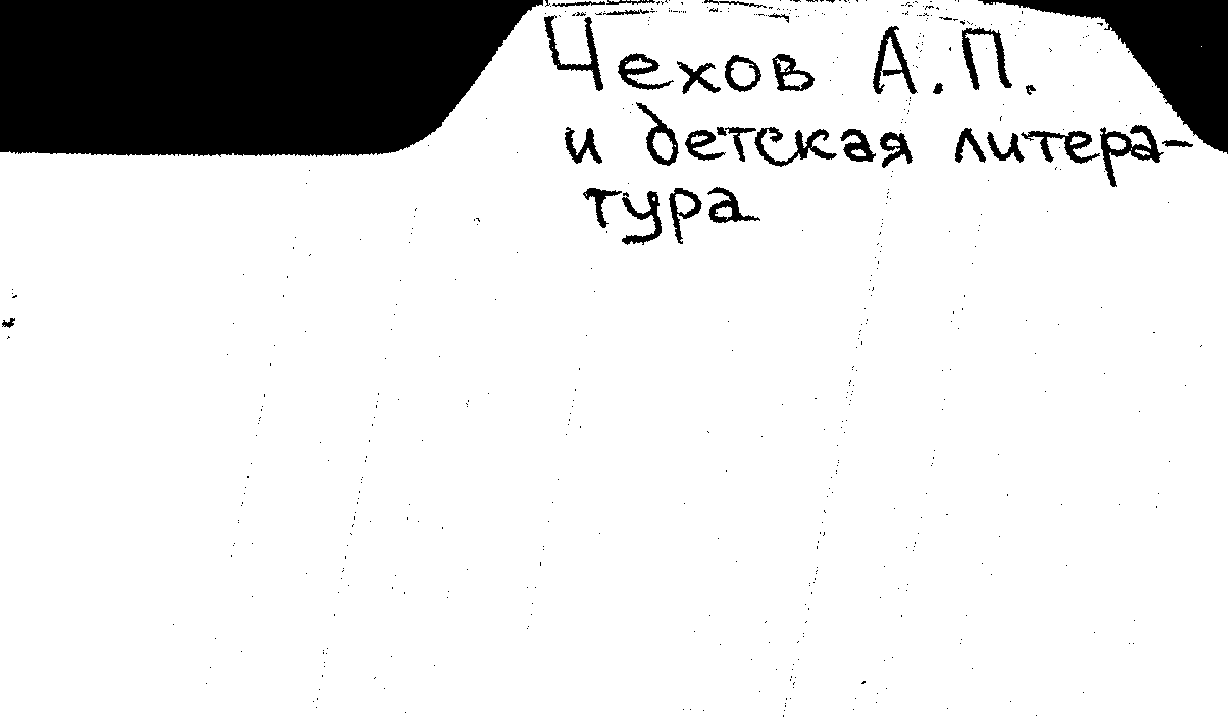 Чехов А.П.
и детская литера-
тура